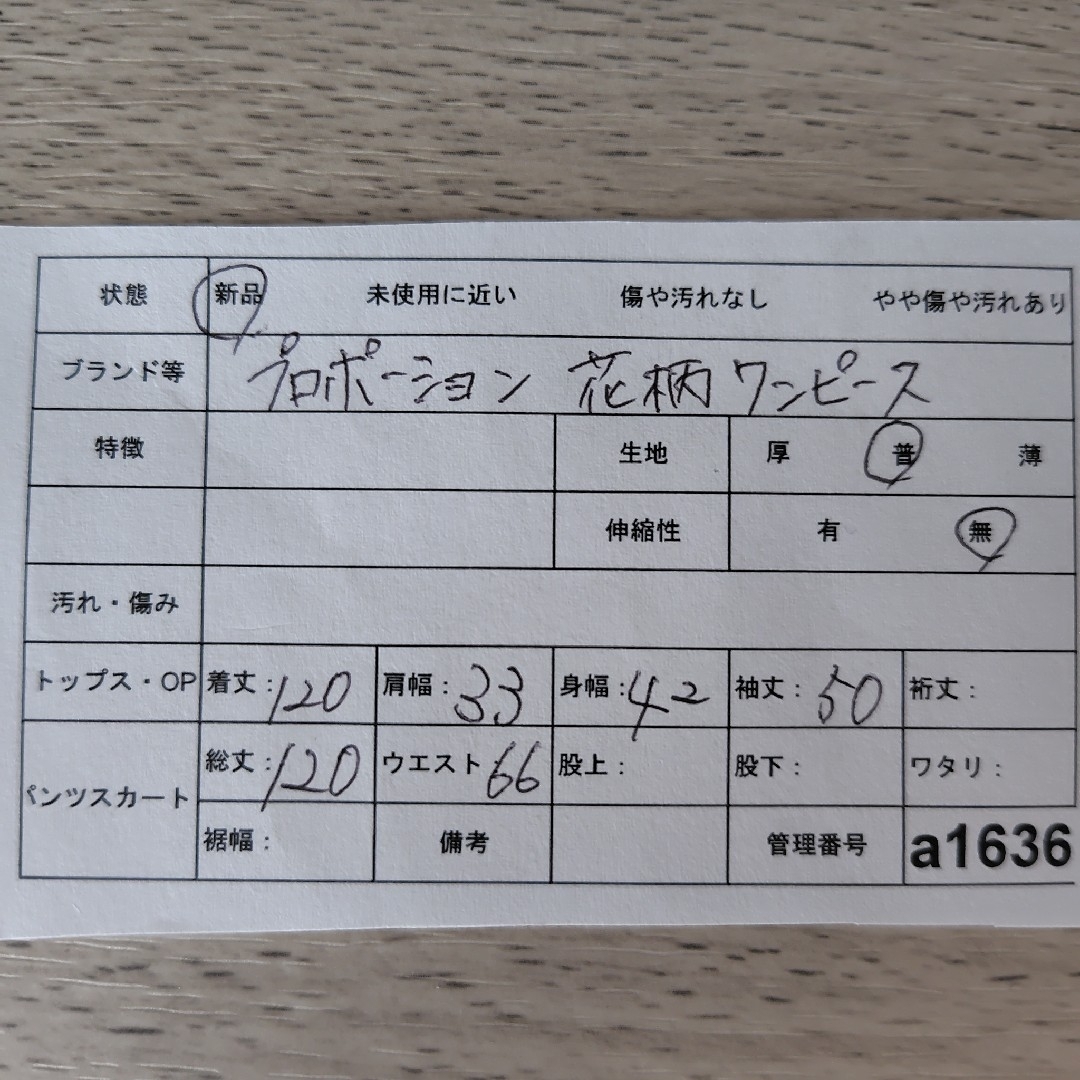 状態 新品 未使用に近い 傷や汚れなし やや傷や汚れあり
ブランド等 プロポーション 花柄ワンピース
特徴 生地 厚 普 薄
伸縮性 有 無
汚れ・傷み
トップス・OP 着丈:120 肩幅:33 身幅:42 袖丈:50 裄丈:
パンツスカート 総丈:120 ウエスト 66 股上: 股下: ワタリ:
裾幅: 備考 管理番号 a1636